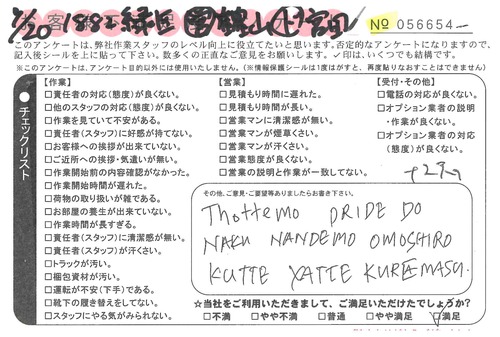 No 056654
このアンケートは、弊社作業スタッフのレベル向上に役立てたいと思います。否定的なアンケートになりますので、
記入後シールを上に貼って下さい。数多くの正直なご意見をお願いします。✓印は、いくつでも結構です。
※このアンケートは、アンケート目的以外には使用いたしません。(※情報保護シールは1度はがすと、再度貼りなおすことはできません)
●チェックリスト
【作業】
□責任者の対応(態度)が良くない。
□他のスタッフの対応(態度)が良くない。
□作業を見ていて不安がある。
□責任者(スタッフ)に好感が持てない。
□お客様への挨拶が出来ていない。
□ご近所への挨拶・気遣いが無い。
□作業開始前の内容確認がなかった。
□作業開始時間が遅れた。
□荷物の取り扱いが雑である。
□お部屋の養生が出来ていない。
□作業時間が長すぎる。
□責任者(スタッフ)に清潔感が無い。
□責任者(スタッフ)が汗くさい。
□トラックが汚い。
□梱包資材が汚い。
□運転が不安(下手)である。
□靴下の履き替えをしてない。
□スタッフにやる気がみられない。
【営業】
□見積もり時間に遅れた。
□見積もり時間が長い。
□営業マンに清潔感が無い。
□営業マンが煙草くさい。
□営業マンが汗くさい。
□営業態度が良くない。
□営業の説明と作業が一致してない。
【受付・その他】
□電話の対応が良くない。
□オプション業者の説明
・作業が良くない。
□オプション業者の対応
(態度)が良くない。
その他、ご意見・ご要望等ありましたらお書き下さい。
ThoTTEMO PRIDE DO
NAKU NANDEMO OMOSHIRO
KUTTE YATTE KUREMASU.
☆当社をご利用いただきまして、ご満足いただけたでしょうか?
□不満 □やや不満 □普通 □やや満足 ☑満足